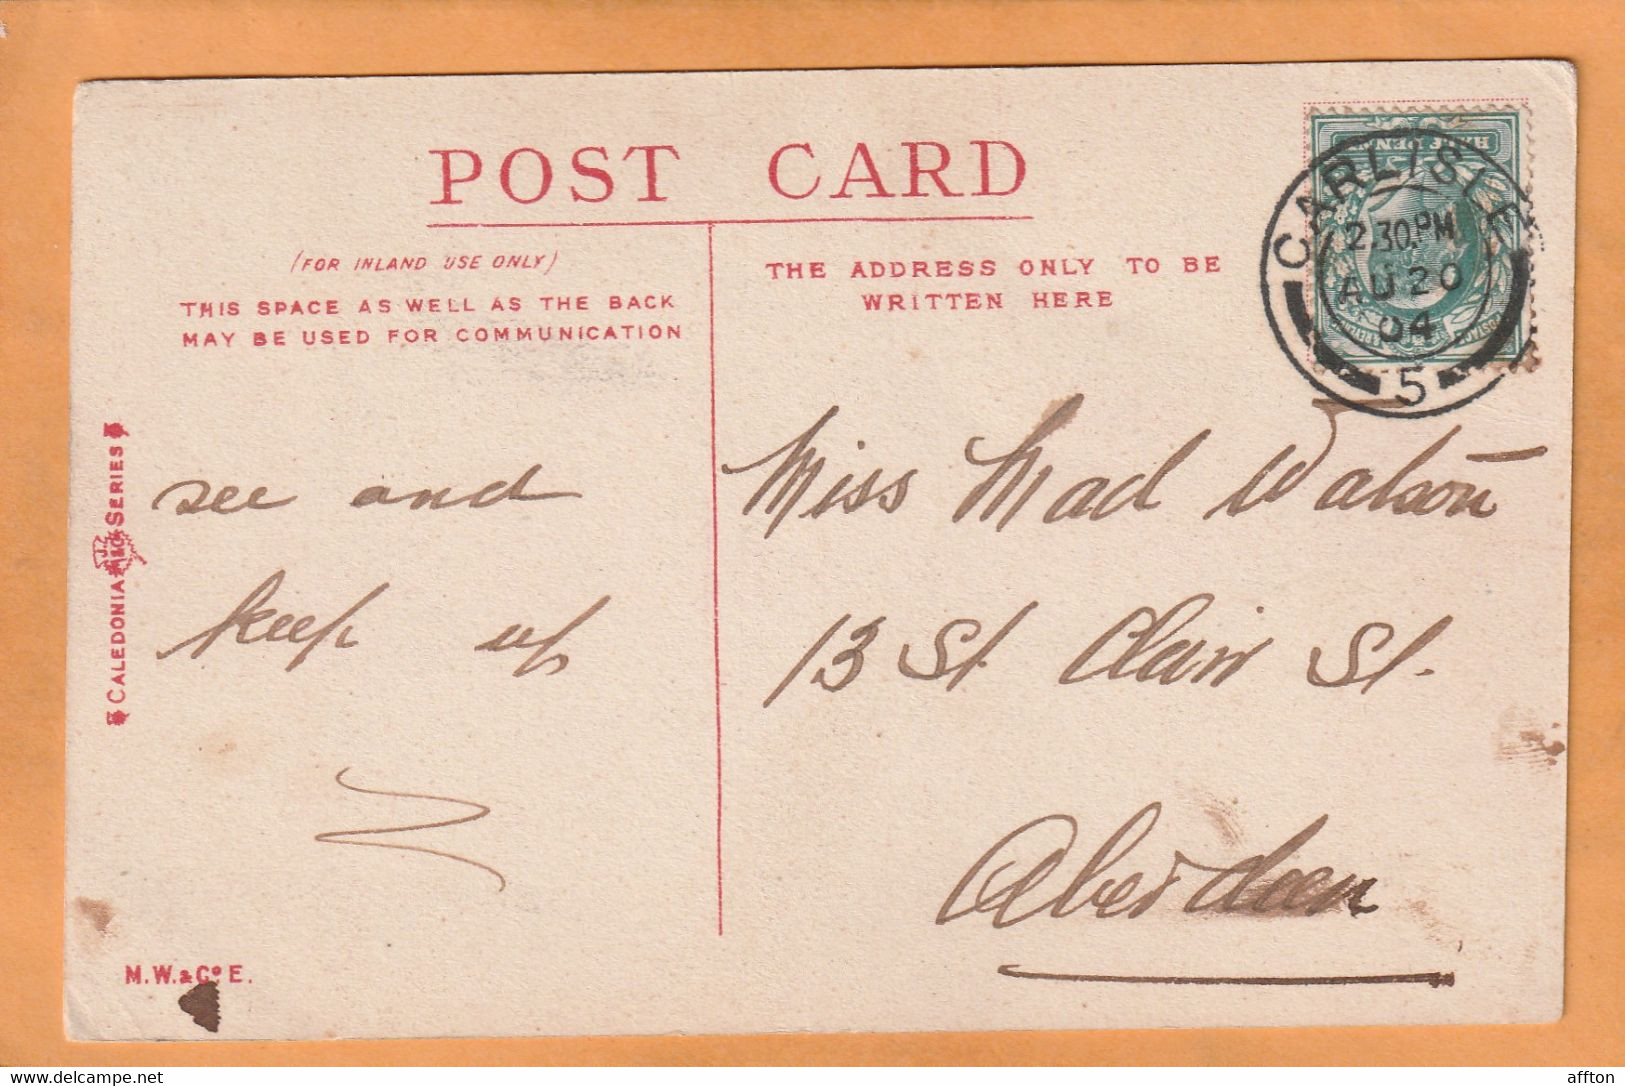 POST CARD
(FOR INLAND USE ONLY)
THIS SPACE AS WELL AS THE BACK
MAY BE USED FOR COMMUNICATION
THE ADDRESS ONLY TO BE
WRITTEN HERE
HALF PENNY
CARLISLE
2.30.PM
AU 20
04
5
POSTAGE
CALEDONIA SERIES
see and
keep up
Miss Mad Watson
13 St Clair St.
Aberdeen
M.W.& Co E.
www.delcampe.net
affton